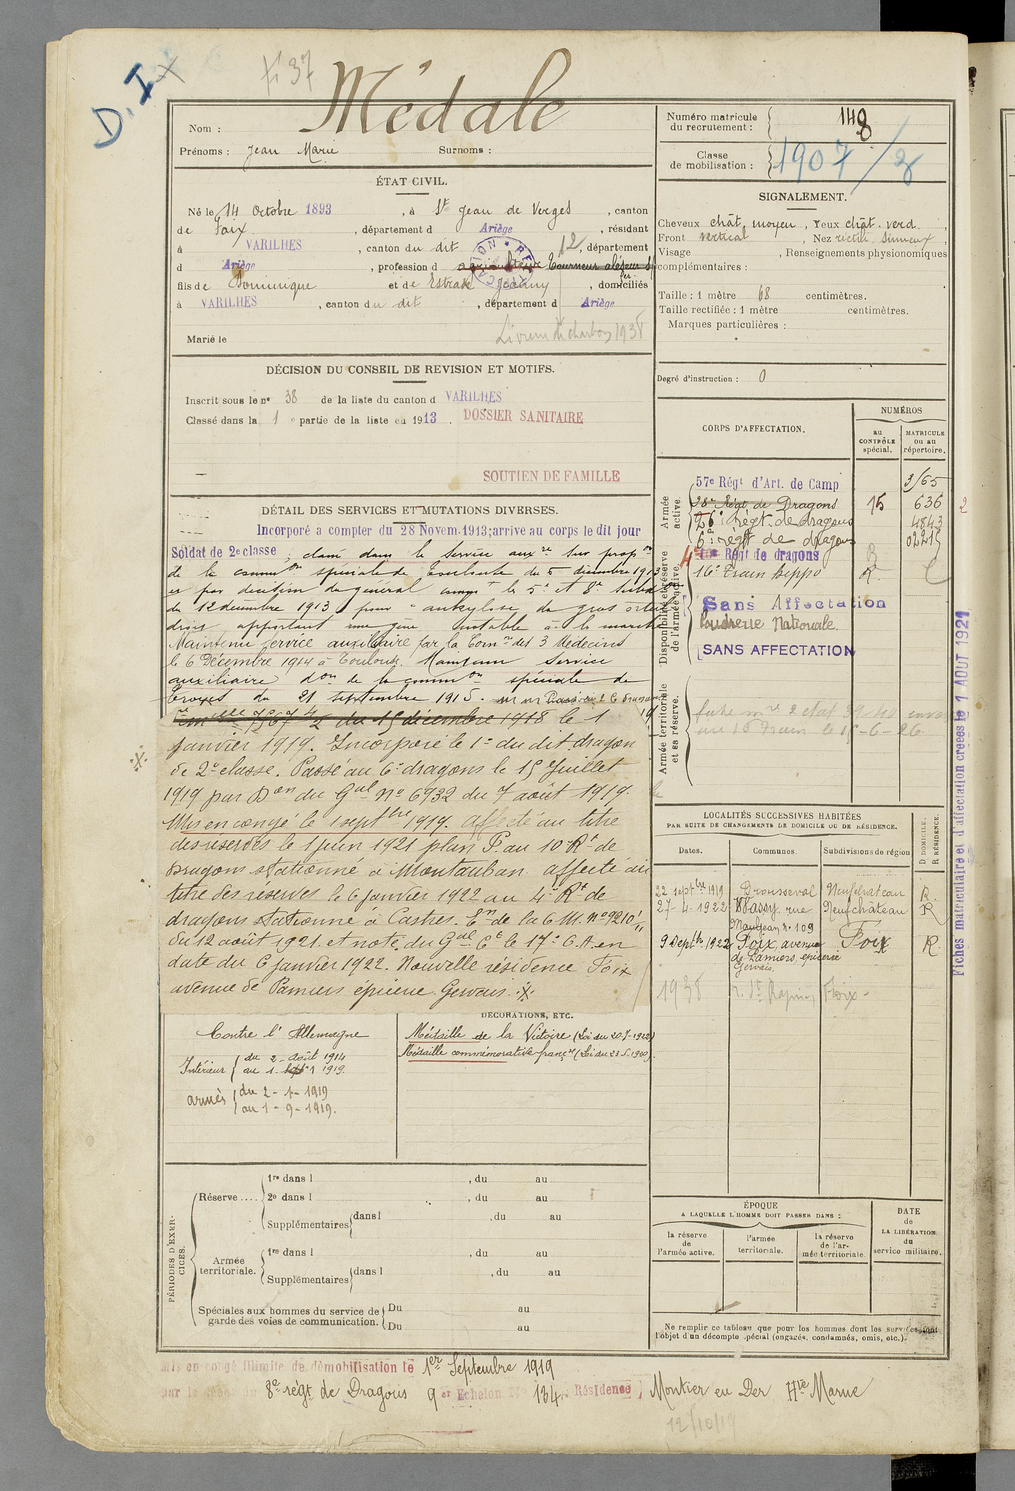 D. I
37
Médale
Nom :
Prénoms : Jean Marie Surnoms :
Numéro matricule du recrutement : 148
Classe de mobilisation : 1907/8
ÉTAT CIVIL.
Né le 14 Octobre 1893, à St Jean de Verges, canton
de Foix, département d Ariège, résidant
à VARILHES, canton du dit, département
d Ariège, profession d Tourneur
fils de Dominique et de Estrade Jeanny, domiciliés
à VARILHES, canton du dit, département d Ariège
Marié le
SIGNALEMENT.
Cheveux chât. moyen, Yeux chât. verd.
Front vertical, Nez rectil. sinueux,
Visage , Renseignements physionomiques
complémentaires :
Taille : 1 mètre 68 centimètres.
Taille rectifiée : 1 mètre centimètres.
Marques particulières :
Degré d'instruction : 0
DÉCISION DU CONSEIL DE REVISION ET MOTIFS.
Inscrit sous le n° 38 de la liste du canton d VARILHES
Classé dans la 1 e partie de la liste en 1913. DOSSIER SANITAIRE
SOUTIEN DE FAMILLE
CORPS D'AFFECTATION.
NUMÉROS
AU CONTRÔLE spécial.
MATRICULE ou au répertoire.
Armée active.
57e Régt d'Art. de Camp
28e Régt de Dragons 15 636
26e régt de dragons 4843
6e régt de dragons 02215
Disponibilité et réserve de l'armée active.
Régt de dragons
16e Train hippo R.
Sans Affectation
Poudrerie Nationale.
SANS AFFECTATION
Armée territoriale et sa réserve.
DÉTAIL DES SERVICES ET MUTATIONS DIVERSES.
Incorporé a compter du 28 Novem. 1913; arrive au corps le dit jour
Soldat de 2e classe; classé dans le Service auxre sur propon
de la common spéciale de Toulouse du 5 décembre 1913
du 12 décembre 1913 pour ankylose du gros orteil
droit apportant une gêne notable à la marche
Maintenu service auxiliaire par la Comon des 3 Médecins
le 6 Décembre 1914 à Toulouse. Maintenu Service
auxiliaire don de la common spéciale de
Troyes du 21 septembre 1915. Passé au 26 dragons
du 15 décembre 1918 le 1
janvier 1919. Incorporé le 1er du dit dragon
de 2e classe. Passé au 6e dragons le 15 Juillet
1919 par Don du Gal No 6932 du 7 août 1919.
Mis en congé le 1 septbre 1919. Affecté au titre
des réserves le 1 juin 1921 plan P. au 10e Rt de
Dragons stationné à Montauban affecté au
titre des réserves le 6 janvier 1922 au 4e Rt de
dragons stationné à Castres. Em de la G.M. no 9210 1/11
du 12 août 1921 et note du Gal Ct le 17e C.A. en
date du 6 janvier 1922. Nouvelle résidence Foix
avenue de Pamiers épicerie Gervais.
LOCALITÉS SUCCESSIVES HABITÉES
PAR SUITE DE CHANGEMENTS DE DOMICILE OU DE RÉSIDENCE.
Dates. Communes. Subdivisions de région D. DOMICILE. R. RÉSIDENCE.
22 septbre 1919 Brousseval Neufchateau R.
27-4-1922 Wassy, rue Neufchâteau R
Maubjean n. 109
9 Septbre 1922 Foix, avenue Foix R.
de Pamiers, épicerie
Gervais.
1938 Foix
Fiches matriculaire et d'affectation créées le 1 AOUT 1921
DÉCORATIONS, ETC.
Contre l'Allemagne
Intérieur du 2 - août 1914
au 1 - 1 1919.
armés du 2 - 1 - 1919
au 1 - 9 - 1919.
Médaille de la Victoire (Loi du 20-7-1922)
Médaille commémorative françse (Loi du 23-6-1920).
PÉRIODES D'EXERCICES.
Réserve .... 1re dans l , du au
2e dans l , du au
Supplémentaires dans l , du au
Armée territoriale. 1re dans l , du au
Supplémentaires dans l , du au
Spéciales aux hommes du service de garde des voies de communication. Du au
Du au
ÉPOQUE
A LAQUELLE L'HOMME DOIT PASSER DANS :
la réserve de l'armée active.
l'armée territoriale.
la réserve de l'armée territoriale.
DATE de LA LIBÉRATION du service militaire.
Ne remplir ce tableau que pour les hommes dont les services font
l'objet d'un décompte spécial (engagés, condamnés, omis, etc.).
Mis en congé illimité de démobilisation le 1er Septembre 1919
par le 8e régt de Dragons 9er Echelon No 134. Résidence, Montier en Der Hte Marne
12/10/19